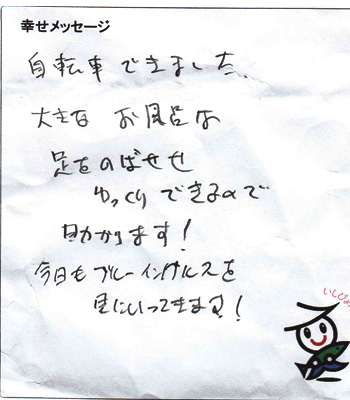 幸せメッセージ
自転車できました。
大きな お風呂は
足をのばせせ
ゆっくりできるので
助かります!
今日もブルーインパルスを
見にいってきます!